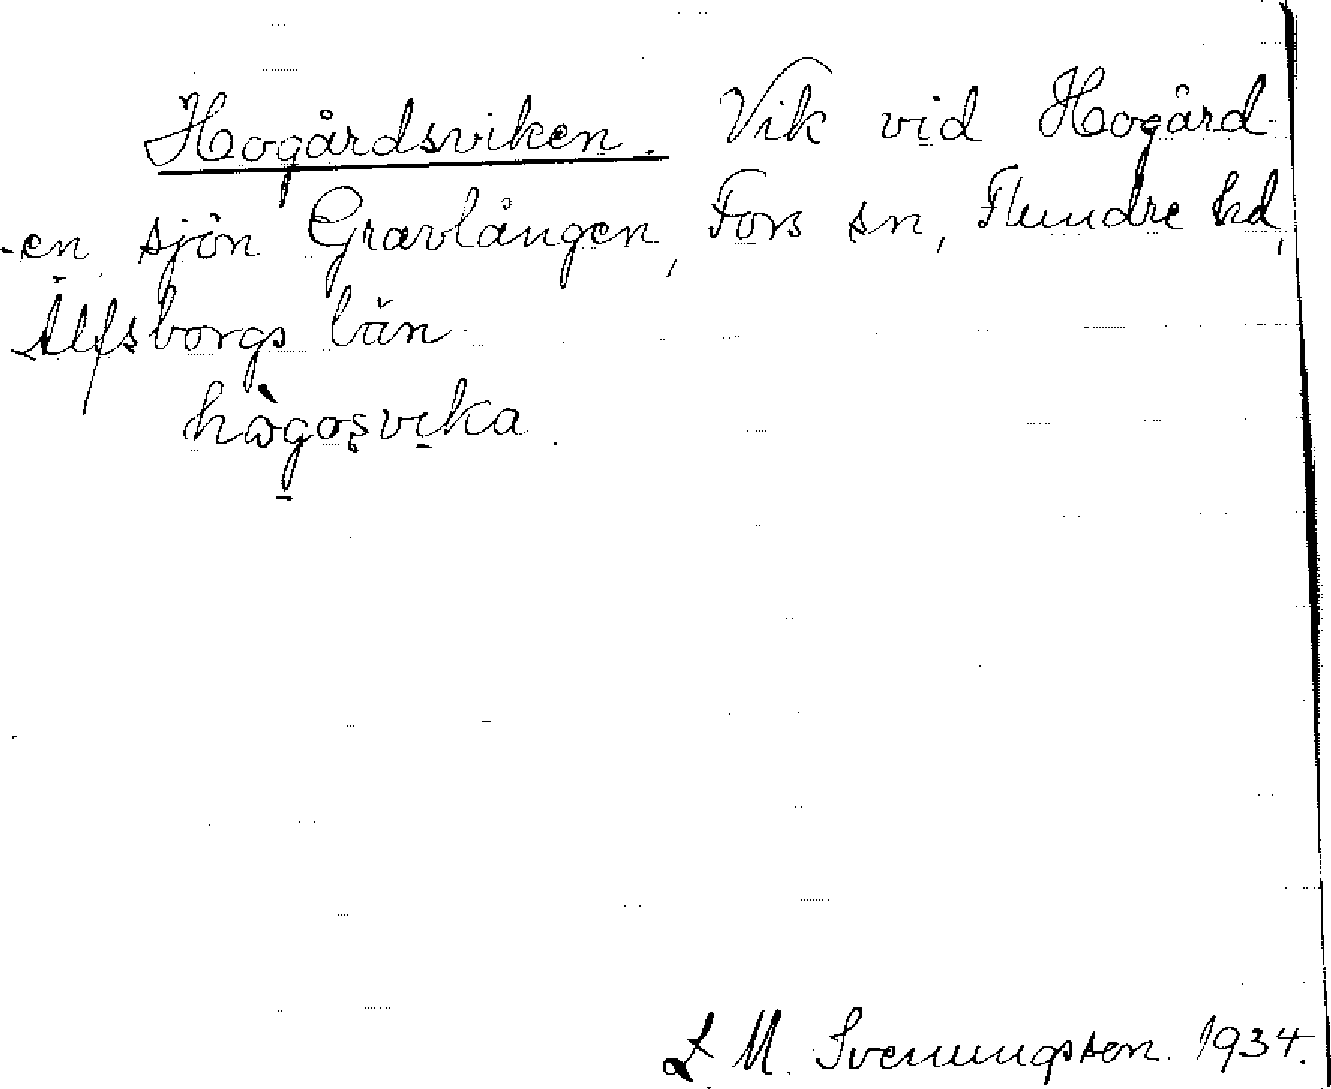 Hogårdsviken. Vik vid Hogård
-en sjön Gravlången, Fors sn, Flundre hd,
Älfsborgs län
hògosvika.
L. M. Svenungsson. 1934.